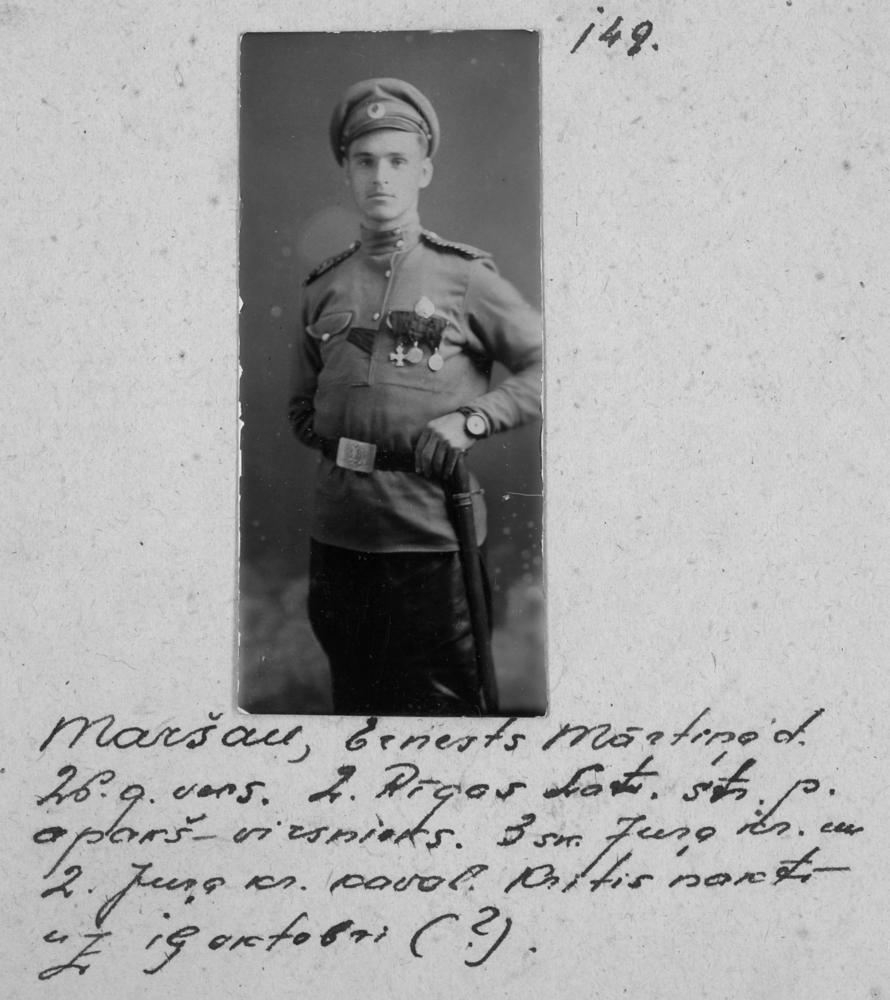 149.
Maršau, Ernests Mārtiņa d.
26.g. vecs. 2. Rīgas Latv. str. p.
apakš-virsnieks. 3 šķ. Jurģa kr. un
2. Jurģa kr. kaval. Kritis naktī
uz 19 oktobri (?).